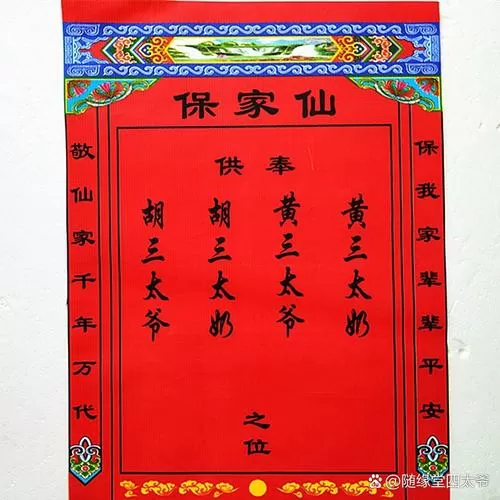 保家仙
敬仙家千年万代
供奉
胡三太爷
胡三太奶
黄三太爷
黄三太奶
之位
保我家辈辈平安
@随缘堂四太爷